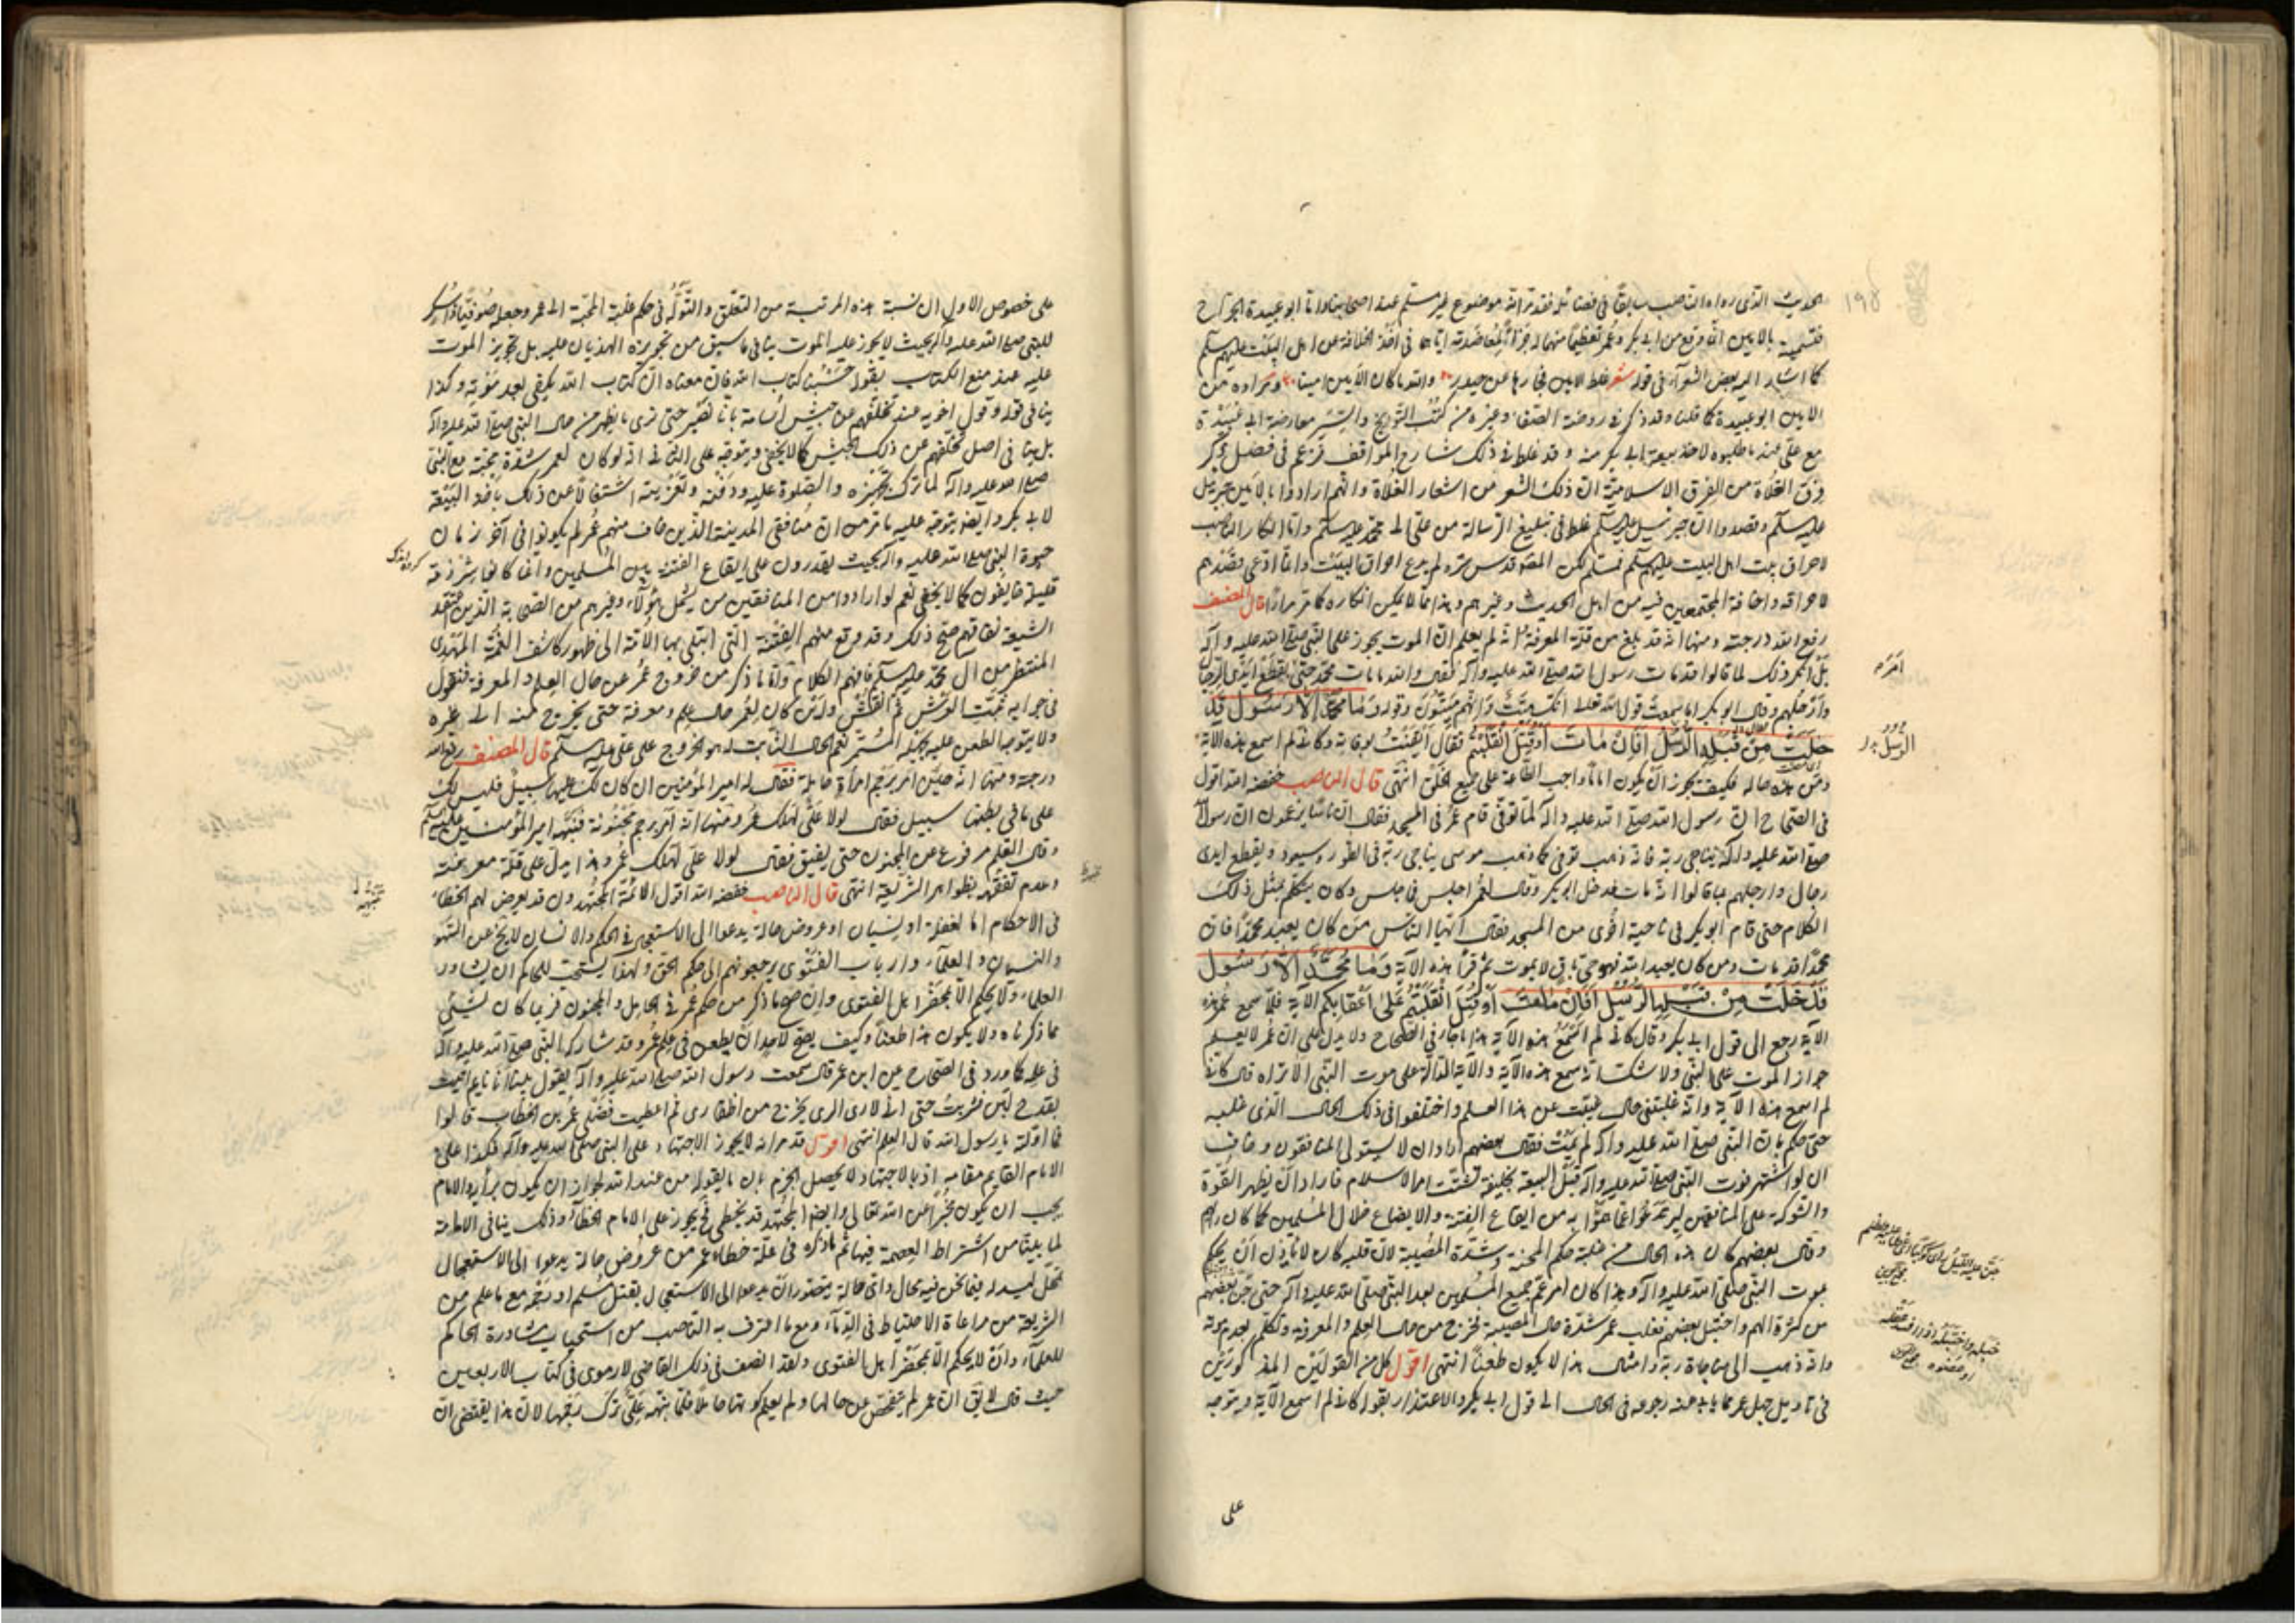 ١٩٨
الحديث الذي رواه الناصب سابقا في فضائله فقد مر انه موضوع غير مسلم عند اصحابنا واما ابو عبيدة الجراح
فتسميته بالامين انما وقع من ابي بكر وعمر تعظيما منهما له جزاء لمعاضدته اياهما في اخذ الخلافة عن اهل البيت عليهم السلم
كما اشار اليه بعض الشعراء في قوله شعر غلط الامين فجازها عن حيدر والله ما كان الامين امينا ومراده من
الامين ابو عبيدة كما قلنا وقد ذكر في روضة الصفا وغيره من كتب التواريخ والسير معارضة ابي عبيدة
مع علي عند ما طلبوه لاخذ بيعة ابي بكر منه وقد غلط في ذلك شارح المواقف فزعم في فصل ذكر
فرق الغلاة من الفرق الاسلامية ان ذلك الشعر من اشعار الغلاة وانهم ارادوا بالامين جبرئيل
عليه السلم وقصدوا ان جبرئيل عليه السلم غلط في تبليغ الرسالة من علي الى محمد عليه السلم واما انكار الناصب
لاحراق بيت اهل البيت عليهم السلم فمسلم لكن المصنف قدس سره لم يدع احراق البيت وانما ادعى قصدهم
لاحراقه واخافة المجتمعين فيه من اهل الحديث وغيرهم وهذا مما لا يمكن انكاره كما مر مرارا قال المصنف
رفع الله درجته ومنها انه قد بلغ من قلة المعرفة انه لم يعلم ان الموت يجوز على النبي صلى الله عليه وآله
بل انكر ذلك لما قالوا قد مات رسول الله صلى الله عليه وآله فقال والله ما مات محمد حتى يقطع ايدي الرجال
وارجلهم وقال ابو بكر اما سمعت قول الله تعالى انك ميت وانهم ميتون وقوله وما محمد الا رسول قد
خلت من قبله الرسل افان مات او قتل انقلبتم فقال ايقنت بوفاته وكاني لم اسمع هذه الآية
ومن هذه حاله فكيف يجوز ان يكون اماما واجب الطاعة على جميع الخلق انتهى قال الناصب خفضه الله اقول
في الصحاح ان رسول الله صلى الله عليه وآله لما توفي قام عمر في المسجد فقال ان ناسا يزعمون ان رسول الله
صلى الله عليه وآله يناجي ربه فانه ذهب توفي كما ذهب موسى يناجي ربه في الطور وسيعود ويقطع ايدي
رجال وارجلهم بما قالوا انه مات فدخل ابو بكر وقال لعمر اجلس فما جلس وكان يتكلم بمثل ذلك
الكلام حتى قام ابو بكر في ناحية اخرى من المسجد فقال ايها الناس من كان يعبد محمدا فان
محمدا قد مات ومن كان يعبد الله فهو حي باق لا يموت ثم قرأ هذه الآية وما محمد الا رسول
قد خلت من قبله الرسل افان مات او قتل انقلبتم على اعقابكم الآية فلما سمع عمر هذه
الآية رجع الى قول ابي بكر وقال كاني لم اسمع هذه الآية هذا ما جاء في الصحاح ولا يدل على ان عمر لا يعلم
جواز الموت على النبي ولا شك انه سمع هذه الآية والآية الدالة على موت النبي الا تراه قال كاني
لم اسمع هذه الآية وانه غلبتني حال غيبت عن هذا العلم واختلفوا في ذلك الحال الذي غلبه
حتى حكم بان النبي صلى الله عليه وآله لم يمت فقال بعضهم اراد ان لا يستولي المنافقون وخاف
ان لو اشتهر فوت النبي صلى الله عليه وآله قبل البيعة بخليفة تشتت امر الاسلام فاراد ان يظهر القوة
والشوكة على المنافقين ليرتدعوا عما هموا به من ايقاع الفتنة والايضاع خلال المسلمين كما كان رأيهم
وقال بعضهم كان هذه الحال من غلبة حكم المحنة وشدة المصيبة لان قلبه كان لا ياذن ان يحكم
بموت النبي صلى الله عليه وآله وهذا كان امر عم جميع المسلمين بعد النبي صلى الله عليه وآله حتى جن بعضهم
من كثرة الهم واختبل بعضهم فغلب عمر شدة حال المصيبة فخرج من حال العلم والمعرفة وتكلم بعدم موته
وانه ذهب الى مناجاة ربه وامثال هذا لا يكون طعنا انتهى اقول كل من القولين المذكورين
في تأويل جهل عمر مما ياباه عنه رجوعه في الحال الى قول ابي بكر والاعتذار بقوله كاني لم اسمع الآية ويتوجه
على
على خصوص الاول ان نسبة هذه المرتبة من التعلق والتوله في حكم غلبة المحبة الى عمر وجعله صوفيا
للنبي صلى الله عليه وآله بحيث لا يجوز عليه الموت ينافي ما سبق من تجويزه الهذيان عليه بل تجويز الموت
عليه عند منع الكتاب بقوله حسبنا كتاب الله فان معناه ان كتاب الله يكفي بعد موته وكذا
ينافي قوله وقول اخويه عند تخلفهم عن جيش اسامة بانا نصبر حتى نرى ما يظهر من حال النبي صلى الله عليه وآله
بل ينافي اصل تخلفهم عن ذلك الجيش كما لا يخفى ويتوجه على الثاني انه لو كان لعمر شدة محبة مع النبي
صلى الله عليه وآله لما ترك تجهيزه والصلوة عليه ودفنه وتعزيته اشتغالا عن ذلك باخذ البيعة
لابي بكر وايضا يتوجه عليه ما مر من ان منافقي المدينة الذين خاف منهم عمر لم يكونوا في آخر زمان
حيوة النبي صلى الله عليه وآله بحيث يقدرون على ايقاع الفتنة بين المسلمين وانما كانوا شرذمة
قليلة خايفون كما لا يخفى نعم لو ارادوا من المنافقين من يشمل هؤلاء وغيرهم من الصحابة الذين تعتقد
الشيعة نفاقهم صح ذلك وقد وقع منهم الفتنة التي ابتلي بها الامة الى ظهور كاشف الغمة المهدي
المنتظر من آل محمد عليه السلم فافهم الكلام واما ما ذكر من خروج عمر عن حال العلم والمعرفة فنقول
في جوابه ثبت العرش ثم انقش وان كان لعمر حال علم ومعرفة حتى يخرج منه الى غيره
ولا يتوجه الطعن عليه بجهله المستمر نعم الحال الثابت له هو الخروج على علي عليه السلم قال المصنف رفع الله
درجته ومنها انه حين امر برجم امرأة حاملة فقال له امير المؤمنين ان كان لك عليها سبيل فليس لك
على ما في بطنها سبيل فقال لولا علي لهلك عمر ومنها انه امر برجم مجنونة فنبهه امير المؤمنين عليه السلم
وقال القلم مرفوع عن المجنون حتى يفيق فقال لولا علي لهلك عمر وهذا يدل على قلة معرفته
وعدم تفقهه بظواهر الشريعة انتهى قال الناصب خفضه الله اقول الائمة المجتهدون قد يعرض لهم الخطاء
في الاحكام اما لغفلة او نسيان او عروض حالة يدعوا الى الاستعجال في الحكم والانسان لا يخ عن السهو
والنسيان والعلماء وارباب الفتوى يرجعونهم الى حكم الحق ولهذا يستحب للحاكم ان يشاور
العلماء ولا يحكم الا بمحضر اهل الفتوى وان صح ما ذكر من حكم عمر في الحامل والمجنون فربما كان لشيئ
مما ذكرناه ولا يكون هذا طعنا وكيف يصح لاحد ان يطعن في علم عمر وقد شاركه النبي صلى الله عليه وآله
في علمه كما ورد في الصحاح عن ابن عمر قال سمعت رسول الله صلى الله عليه وآله يقول بينا انا نايم اتيت
بقدح لبن فشربت حتى اني لارى الري يخرج من اظفاري ثم اعطيت فضلي عمر بن الخطاب قالوا
فما اولته يا رسول الله قال العلم انتهى اقول قد مر انه لا يجوز الاجتهاد على النبي صلى الله عليه وآله فكذا على
الامام القايم مقامه اذ بالاجتهاد لا يحصل الجزم بان ما يقوله من عند الله لجواز ان يكون برأيه والامام
يجب ان يكون مخبرا عن الله تعالى وايضا المجتهد قد يخطي فيجوز على الامام الخطاء وذلك ينافي الامامة
لما بينا من اشتراط العصمة فيها ثم ما ذكره في علة خطاء عمر من عروض حالة يدعوا الى الاستعجال
تمحل ليس له فيما نحن فيه مجال واي حالة يتصور ان يدعوا الى الاستعجال بقتل مسلم او رجمه مع ما علم من
الشريعة من مراعاة الاحتياط في الدماء ومع ما اعترف به الناصب من استحباب مشاورة الحاكم
للعلماء وان لا يحكم الا بمحضر اهل الفتوى ولقد انصف في ذلك القاضي الارموي في كتاب الاربعين
حيث قال لا يق ان عمر لم يتفحص عن حالها ولم يعلم كونها حاملا فلما نبهه علي ترك رجمها لان هذا يقتضي ان